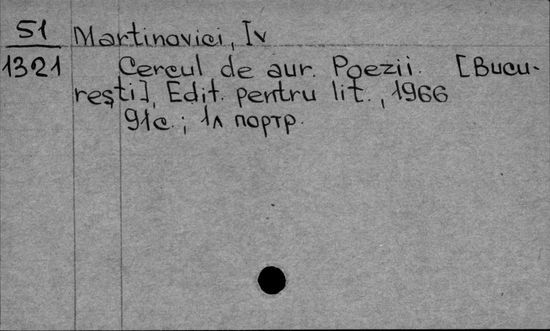 51 Martinovici, Iv
1321 Cercul de aur. Poezii. [Bucu-
rești], Edit. pentru lit., 1966
91с.; 1л портр.